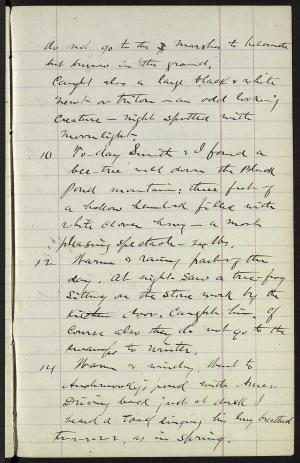 do not go to the marshes to hibernate
but burrow in the ground.
Caught also a large black & white
newt or triton - an odd looking
creature - night spotted with
moonlight.
10 To-day Smith & I found a
bee-tree well down the Black
Pond mountain; three feet of
a hollow hemlock filled with
white clover honey - a most
pleasing spectacle - lbs.
12 Warm & rainy part of the
day. At night saw a tree-frog
sitting on the stone work by the
kitchen door. Caught him. Of
course also they do not go to the
swamps to winter.
14 Warm & windy. Went to
pond with
Driving back just at dusk I
heard a toad singing his long breathed
tr-r-r-r-r, as in Spring.